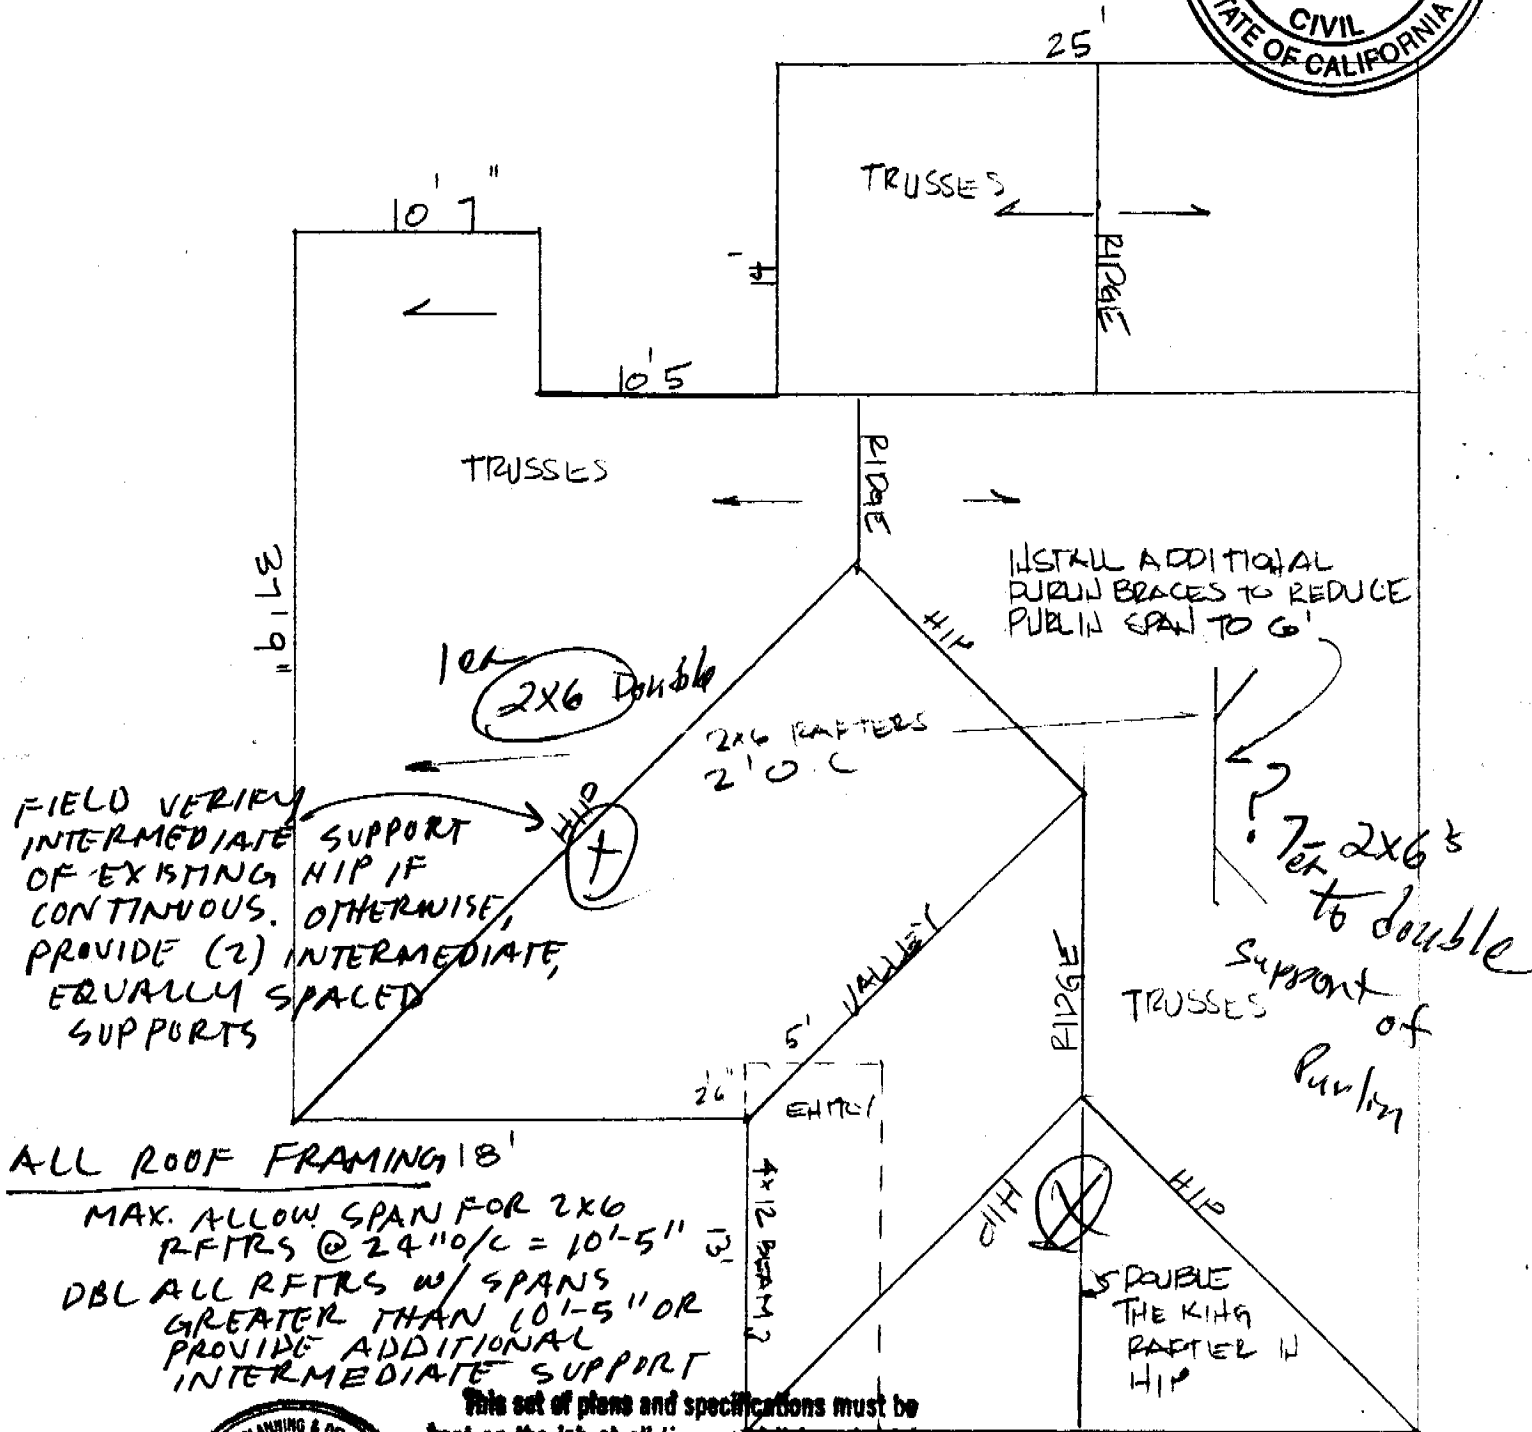 CIVIL
STATE OF CALIFORNIA
25'
TRUSSES
10' 7"
14'
RIDGE
10' 5
TRUSSES
RIDGE
37' 9"
INSTALL ADDITIONAL
PURLIN BRACES TO REDUCE
PURLIN SPAN TO 6'
HIP
1ea
2x6 Double
2x6 RAFTERS
2' O.C
HIP
FIELD VERIFY
INTERMEDIATE SUPPORT
OF EXISTING HIP IF
CONTINUOUS. OTHERWISE,
PROVIDE (2) INTERMEDIATE,
EQUALLY SPACED
SUPPORTS
?
7ea 2x6's
to double
Support
of
Purlin
VALLEY
RIDGE
TRUSSES
5'
2'6"
ENTRY
18'
ALL ROOF FRAMING
MAX. ALLOW SPAN FOR 2X6
RFTRS @ 24"O/C = 10'-5"
DBL ALL RFTRS W/ SPANS
GREATER THAN 10'-5" OR
PROVIDE ADDITIONAL
INTERMEDIATE SUPPORT
4x12 BEAM ?
13'
HIP
HIP
DOUBLE
THE KING
RAFTER IN
HIP
This set of plans and specifications must be